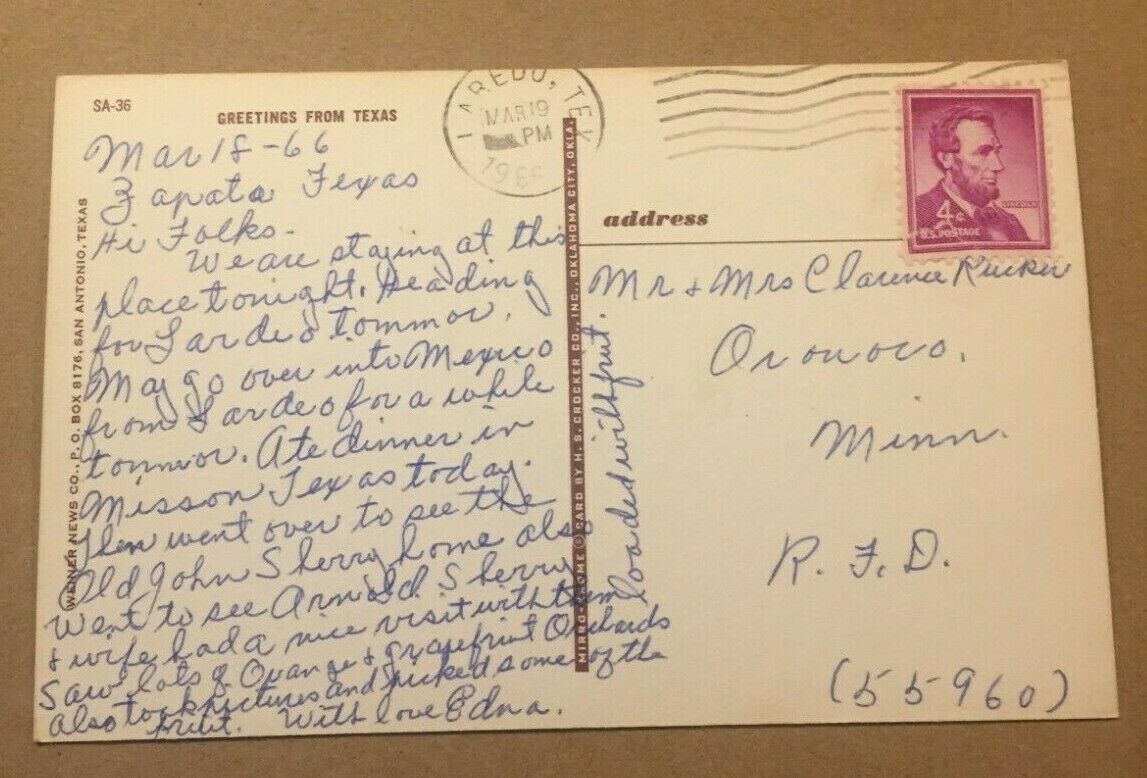 SA-36
GREETINGS FROM TEXAS
Mar 18-66
Zapata Texas
Hi Folks-
We are staying at this
place tonight. Heading
for Lardeo tommor.
May go over into Mexico
from Lardeo for a while
tommor. Ate dinner in
Misson Texas today.
Then went over to see the
Old John Sherry home also
went to see Arnold Sherry
& wife had a nice visit with them
Saw lots of Orange & grapefruit Orchards
loaded with fruit.
also took pictures and picked some of the
fruit. With love Edna.
WEINER NEWS CO., P. O. BOX 8176, SAN ANTONIO, TEXAS
MIRRO-KROME ® CARD BY H. S. CROCKER CO., INC., OKLAHOMA CITY, OKLA.
LAREDO, TEX
MAR 19
PM
1966
4¢
LINCOLN
U.S. POSTAGE
address
Mr & Mrs Clarence Rucker
Oronoco.
Minn.
R. F. D.
(55960)